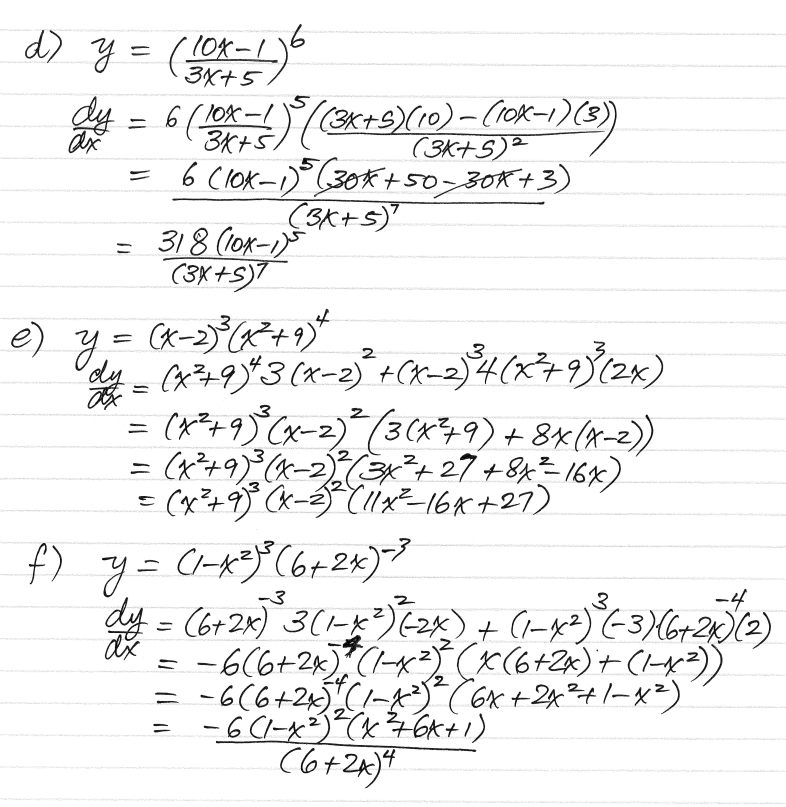 d) y = ((10x-1)/(3x+5))^6
dy/dx = 6((10x-1)/(3x+5))^5 (((3x+5)(10) - (10x-1)(3))/(3x+5)^2)
= 6(10x-1)^5(30x+50-30x+3)/(3x+5)^7
= 318(10x-1)^5/(3x+5)^7
e) y = (x-2)^3(x^2+9)^4
dy/dx = (x^2+9)^4 3(x-2)^2 + (x-2)^3 4(x^2+9)^3(2x)
= (x^2+9)^3(x-2)^2(3(x^2+9) + 8x(x-2))
= (x^2+9)^3(x-2)^2(3x^2+27+8x^2-16x)
= (x^2+9)^3(x-2)^2(11x^2-16x+27)
f) y = (1-x^2)^3(6+2x)^-3
dy/dx = (6+2x)^-3 3(1-x^2)^2(-2x) + (1-x^2)^3(-3)(6+2x)^-4(2)
= -6(6+2x)^-4(1-x^2)^2(x(6+2x)+(1-x^2))
= -6(6+2x)^-4(1-x^2)^2(6x+2x^2+1-x^2)
= -6(1-x^2)^2(x^2+6x+1)/(6+2x)^4